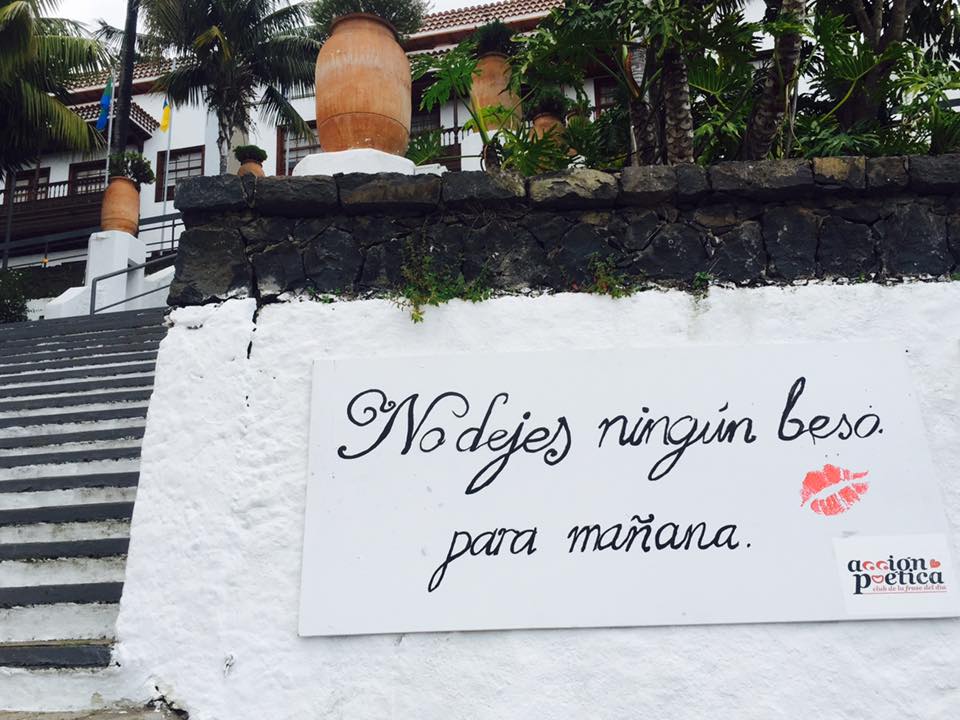 No dejes ningún beso.
para mañana.
acción
poética
club de la frase del día